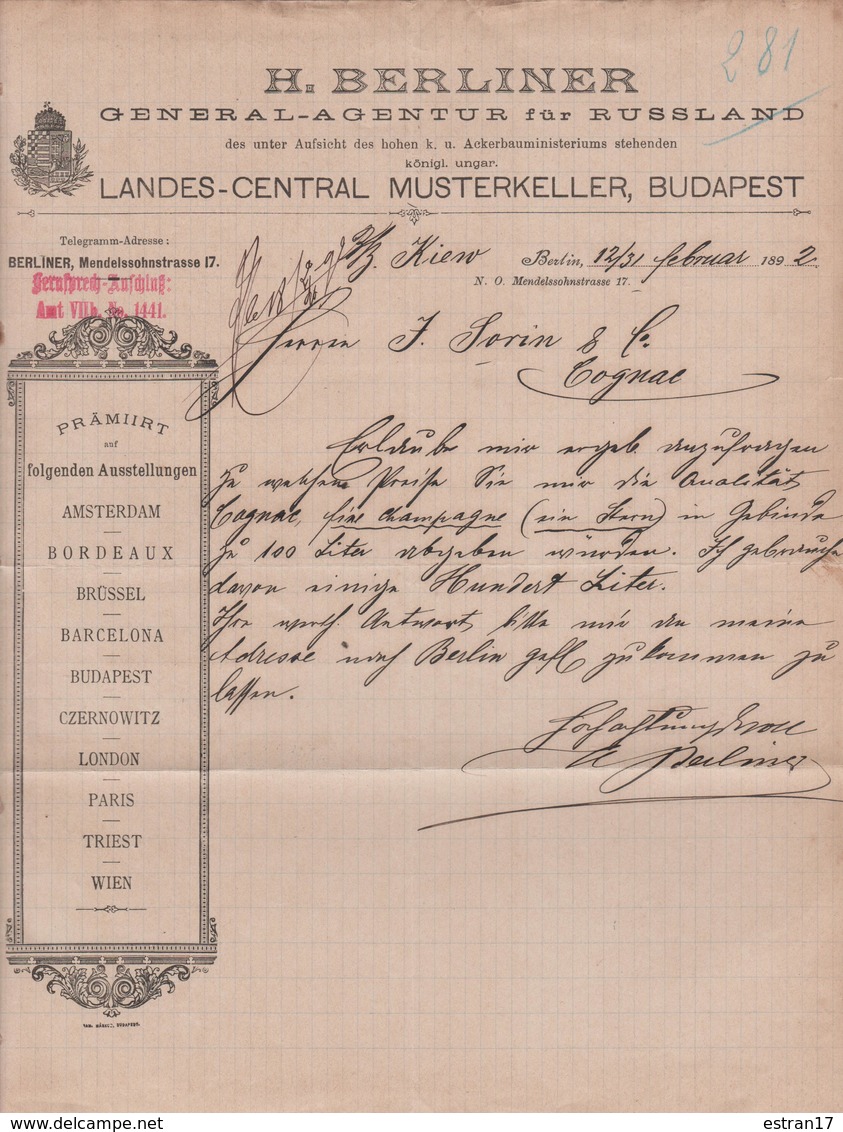 281
H. BERLINER
GENERAL-AGENTUR für RUSSLAND
des unter Aufsicht des hohen k. u. Ackerbauministeriums stehenden
königl. ungar.
LANDES-CENTRAL MUSTERKELLER, BUDAPEST
Telegramm-Adresse:
BERLINER, Mendelssohnstrasse 17.
Fernsprech-Anschluß:
Amt VIIb. No. 1441.
Kiew Berlin, 12/31 februar 1892.
N. O. Mendelssohnstrasse 17.
Herrn J. Sorin & C.
Cognac
Erlaube mir ergeb anzufragen
zu welchem Preise Sie mir die Qualität
Cognac, fine champagne (ein Stern) in Gebinde
zu 100 Liter abgeben würden. Ich gebrauche
davon einige Hundert Liter.
Ihre werth. Antwort bitte mir an meine
Adresse nach Berlin gefl zukommen zu
lassen.
Hochachtungsvoll
H Berliner
PRÄMIIRT
auf
folgenden Ausstellungen
AMSTERDAM
BORDEAUX
BRÜSSEL
BARCELONA
BUDAPEST
CZERNOWITZ
LONDON
PARIS
TRIEST
WIEN
estran17